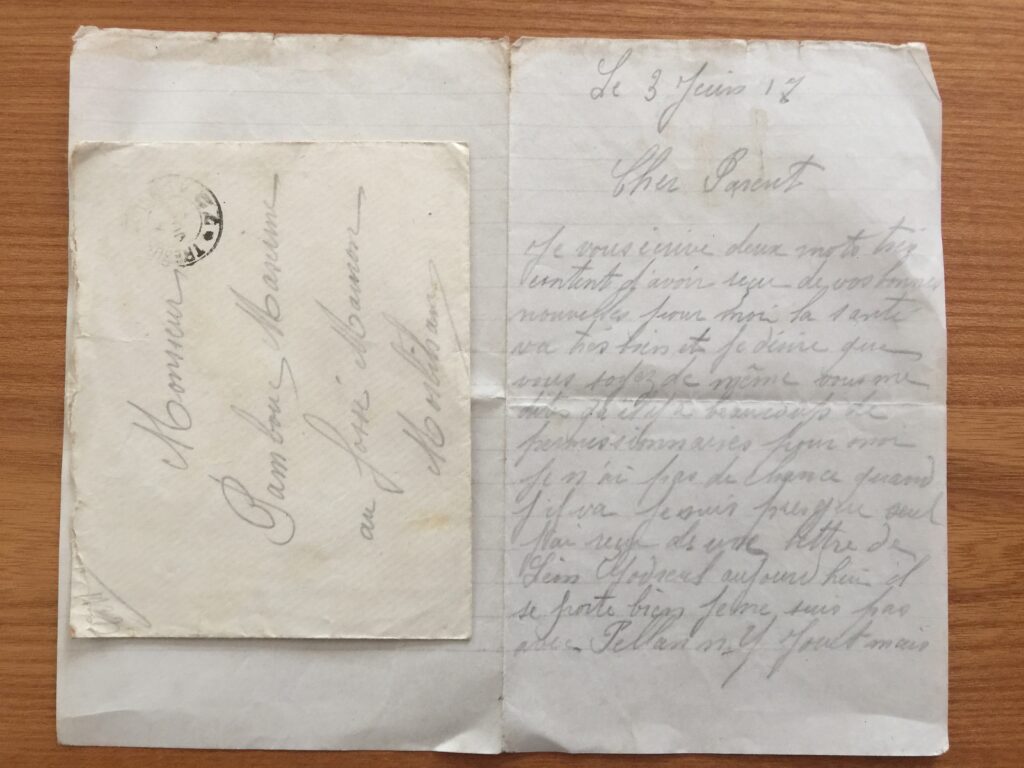 Monsieur
Pambouc Maxime
au fossé Mauron
Morbihan
Le 3 Juin 17
Cher Parent
Je vous écrive deux mots très
content d'avoir reçu de vos bonnes
nouvelles pour moi la santé
va très bien et je désire que
vous soyez de même vous me
dites qu'il y a beaucoup de
permissionnaires pour moi
Je n'ai pas de chance quand
j'il va je suis presque seul
J'ai reçu lettre de
Léon aujourd'hui il
se porte bien je ne suis pas
avec Pellan ni mais